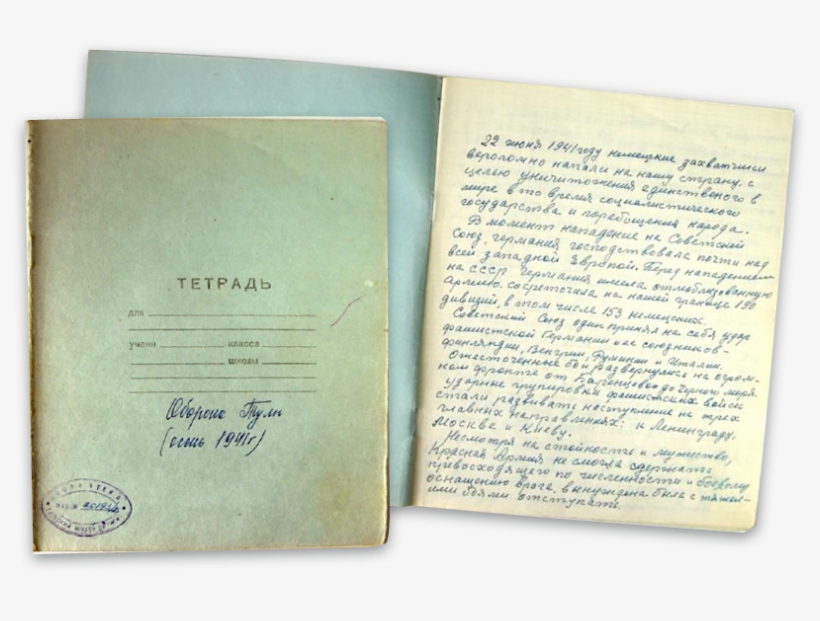 ТЕТРАДЬ
для
учени класса
школы
Оборона Тулы
(осень 1941г)
22 июня 1941 году немецкие захватчики
вероломно напали на нашу страну, с
целью уничтожения единственого в
мире в то время социалистического
государства и порабощения народа.
В момент нападение на Советский
Союз, германия господствовала почти над
всей западной Европой. Перед нападением
на СССР Германия имела отмобилизованную
Армию. сосредоточила на нашей границе 190
дивизий, в том числе 153 немецких.
Советский Союз один принял на себя удар
фашистской Германии и ее союзников-
финляндии, Венгрии, Румынии и Италии.
Ожесточенные бои развернулись на огром-
ном фронте от Баренцово до Черного моря.
ударные группировки фашистских войск
стали развивать наступление на трех
главных направлениях: к Ленинграду,
Москве и Киеву.
Несмотря на стойкость и мужество,
Красная Армия не смогла сдержать
превосходящего по численности и боевому
оснащению врага, вынуждена была с тяжел-
ыми боями отступать.